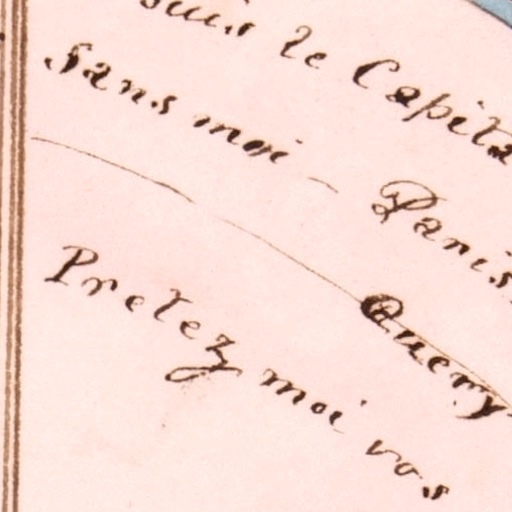 suis le Capita
Sans moi - Paris.
Query
Pretez moi vos